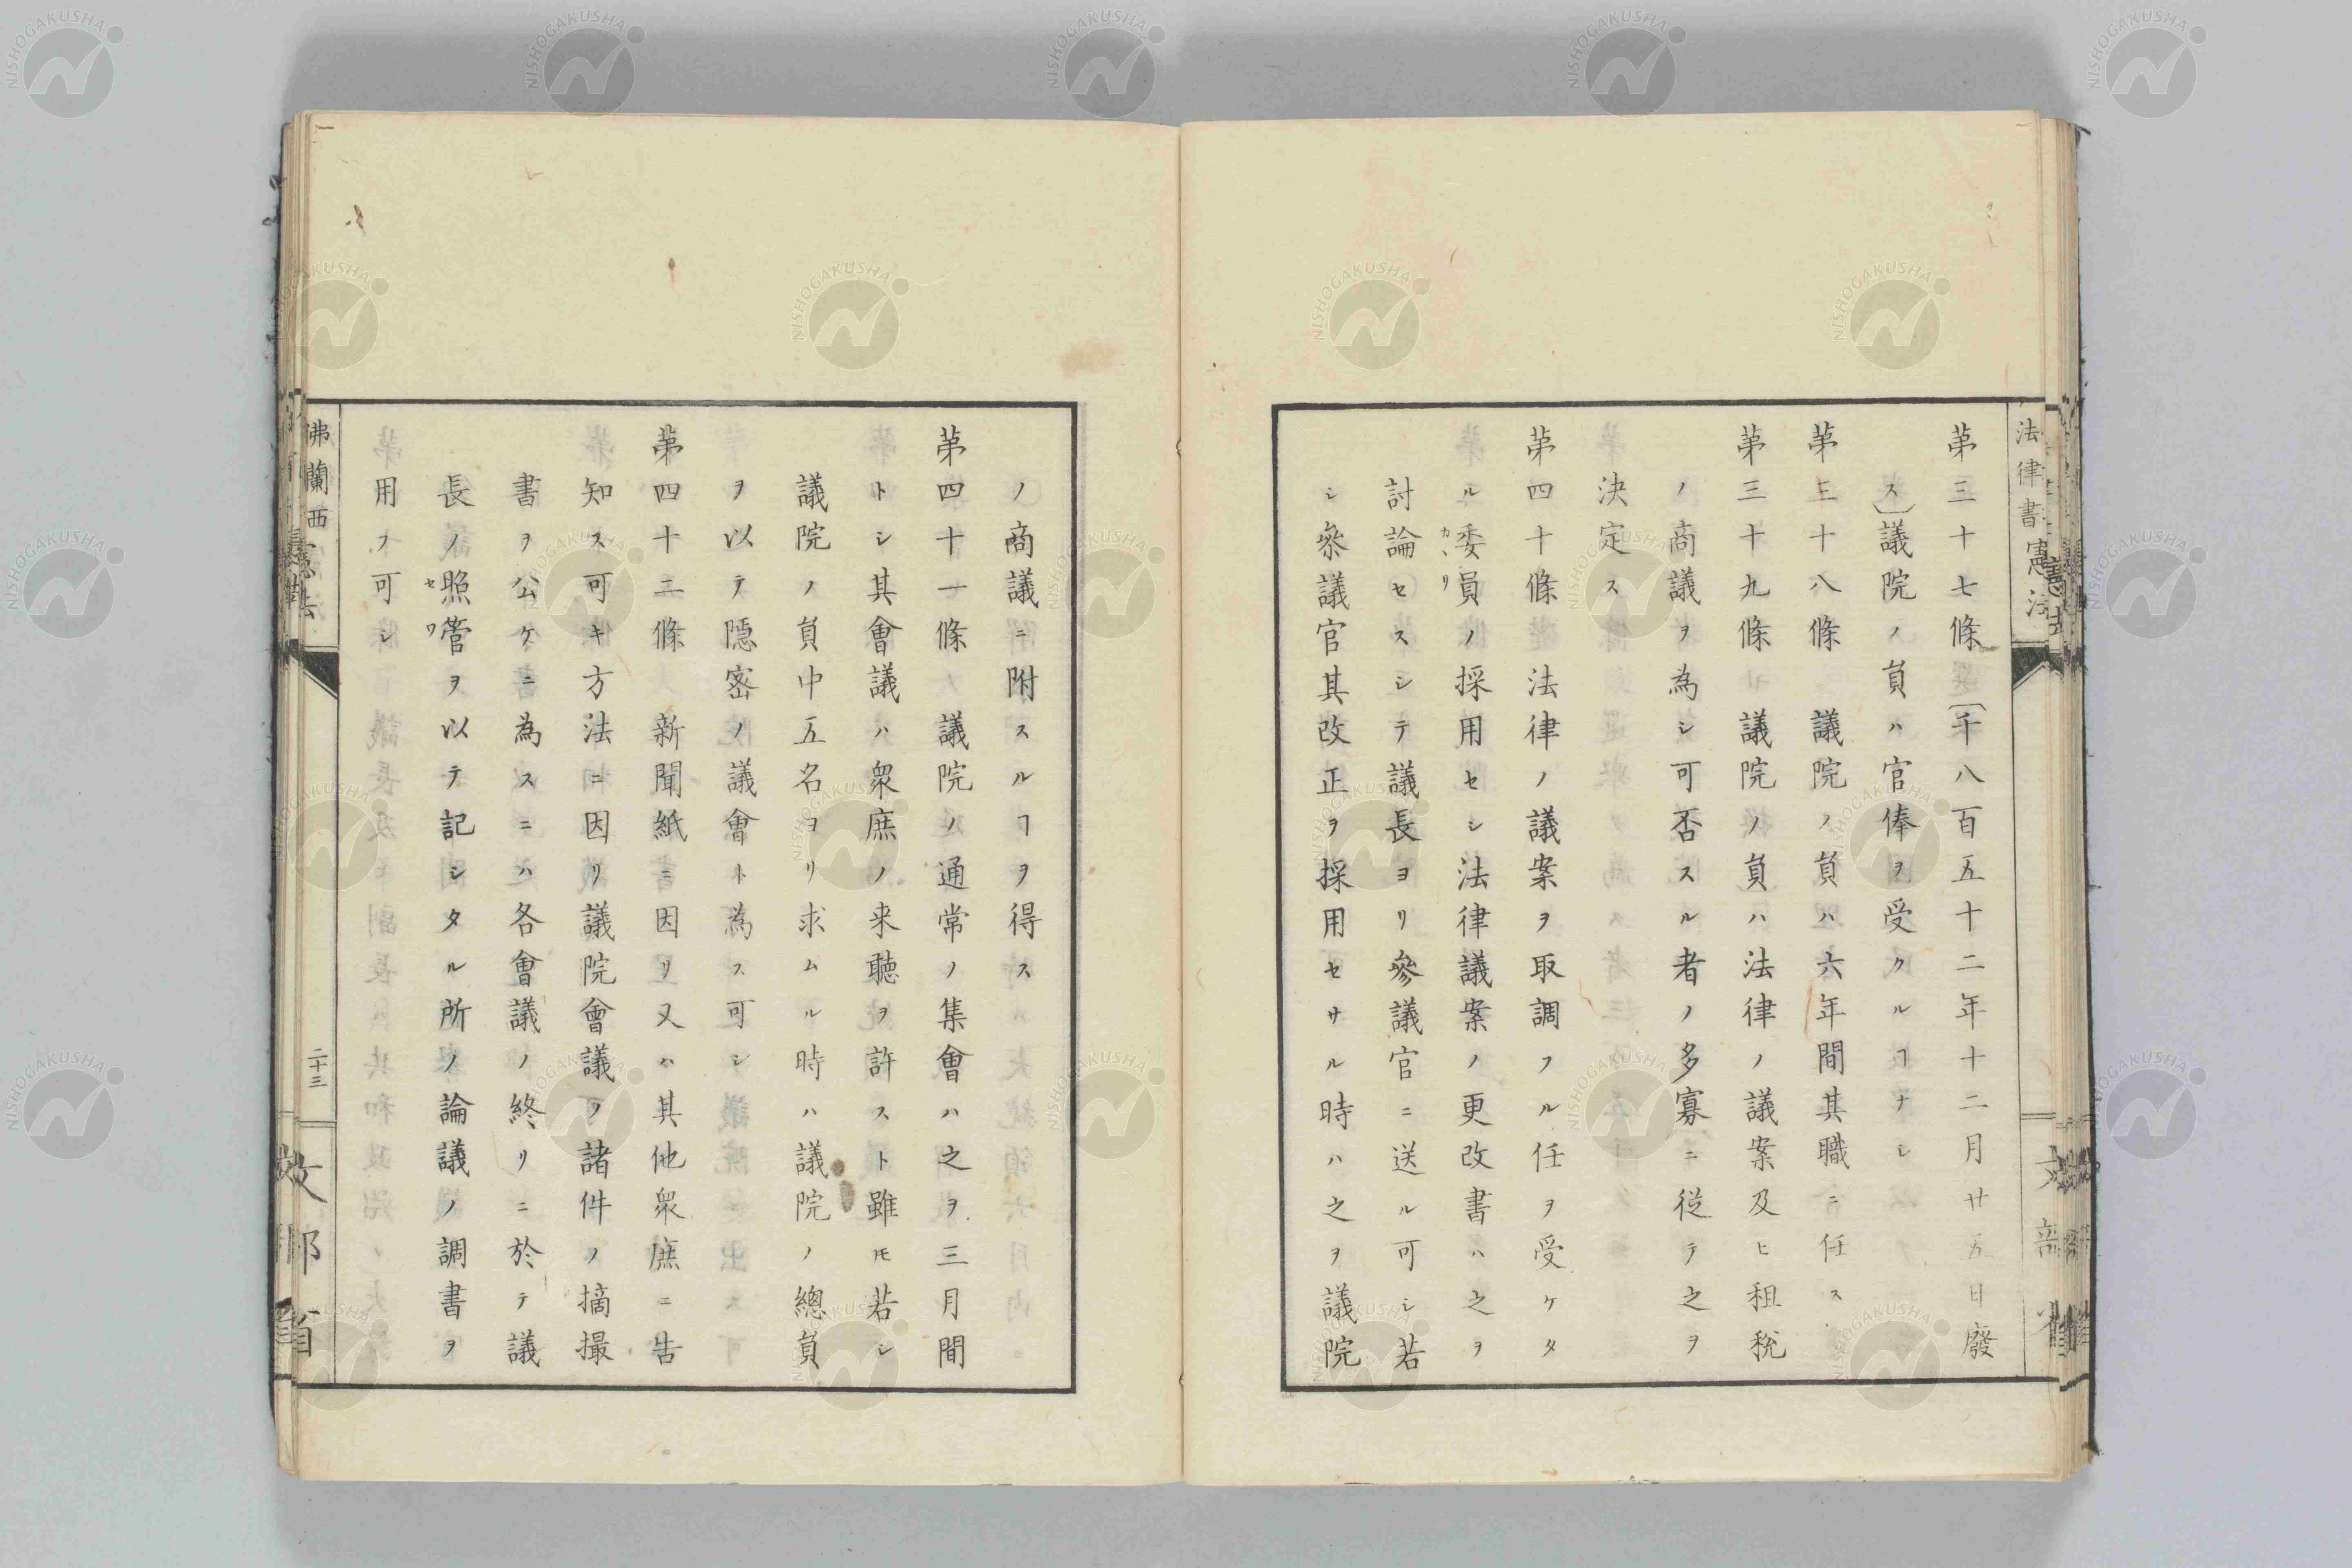 法律書憲法
第三十七條〔千八百五十二年十二月廿五日廢
ス〕議院ノ員ハ官俸ヲ受クルヿナシ
第三十八條 議院ノ員ハ六年間其職ニ任ス
第三十九條 議院ノ員ハ法律ノ議案及ヒ租稅
ノ商議ヲ為シ可否スル者ノ多寡ニ從テ之ヲ
決定ス
第四十條 法律ノ議案ヲ取調フル任ヲ受ケタ
ル委員ノ採用セシ法律議案ノ更改書ハ之ヲ
カヽリ
討論セスシテ議長ヨリ參議官ニ送ル可シ若
シ參議官其改正ヲ採用セサル時ハ之ヲ議院
文部省
ノ商議ニ附スルヿヲ得ス
第四十一條 議院ノ通常ノ集會ハ之ヲ三月間
トシ其會議ハ衆庶ノ来聽ヲ許スト雖モ若シ
議院ノ員中五名ヨリ求ムル時ハ議院ノ總員
ヲ以テ隱密ノ議會ト為ス可シ
第四十二條 新聞紙ニ因リ又ハ其他衆庶ニ告
知ス可キ方法ニ因リ議院會議ノ諸件ノ摘撮
書ヲ公ケニ為スニハ各會議ノ終リニ於テ議
長ノ照管ヲ以テ記シタル所ノ論議ノ調書ヲ
セワ
用フ可シ
佛蘭西憲法
二十三
文部省
NISHOGAKUSHA